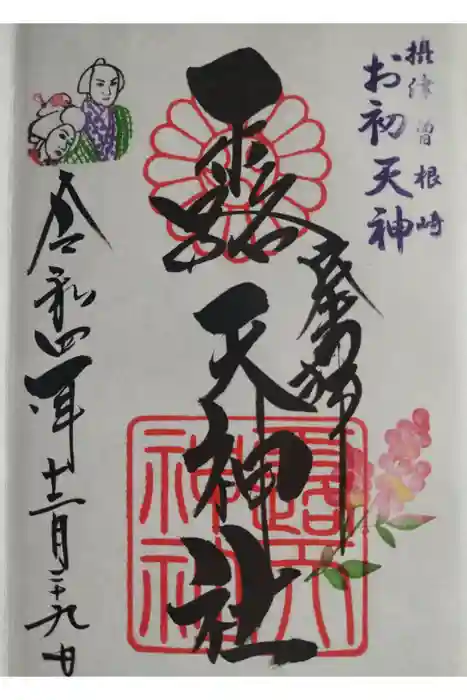 摂津曽根崎
お初天神
奉拝
露天神社
令和四年十二月二十九日
露天神社